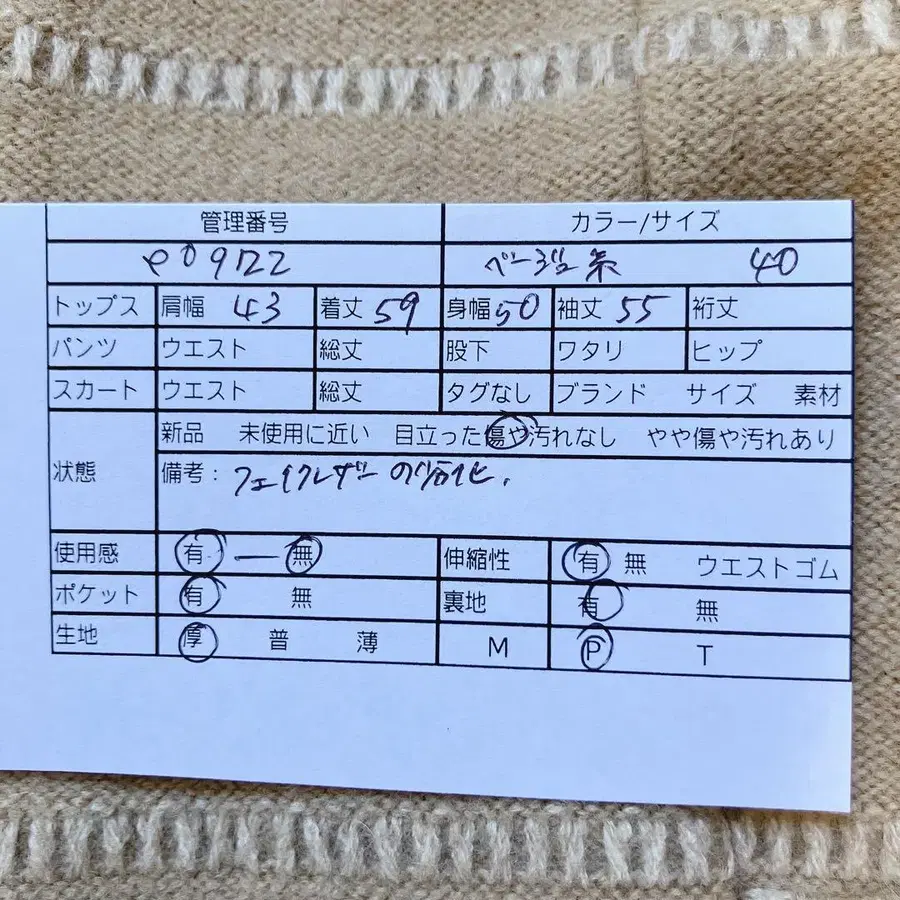 管理番号 カラー/サイズ
P09722 ベージュ系 40
トップス 肩幅 43 着丈 59 身幅 50 袖丈 55 裄丈
パンツ ウエスト 総丈 股下 ワタリ ヒップ
スカート ウエスト 総丈 タグなし ブランド サイズ 素材
状態 新品 未使用に近い 目立った傷や汚れなし やや傷や汚れあり
備考: フェイクレザーの劣化.
使用感 有 — 無 伸縮性 有 無 ウエストゴム
ポケット 有 無 裏地 有 無
生地 厚 普 薄 M P T